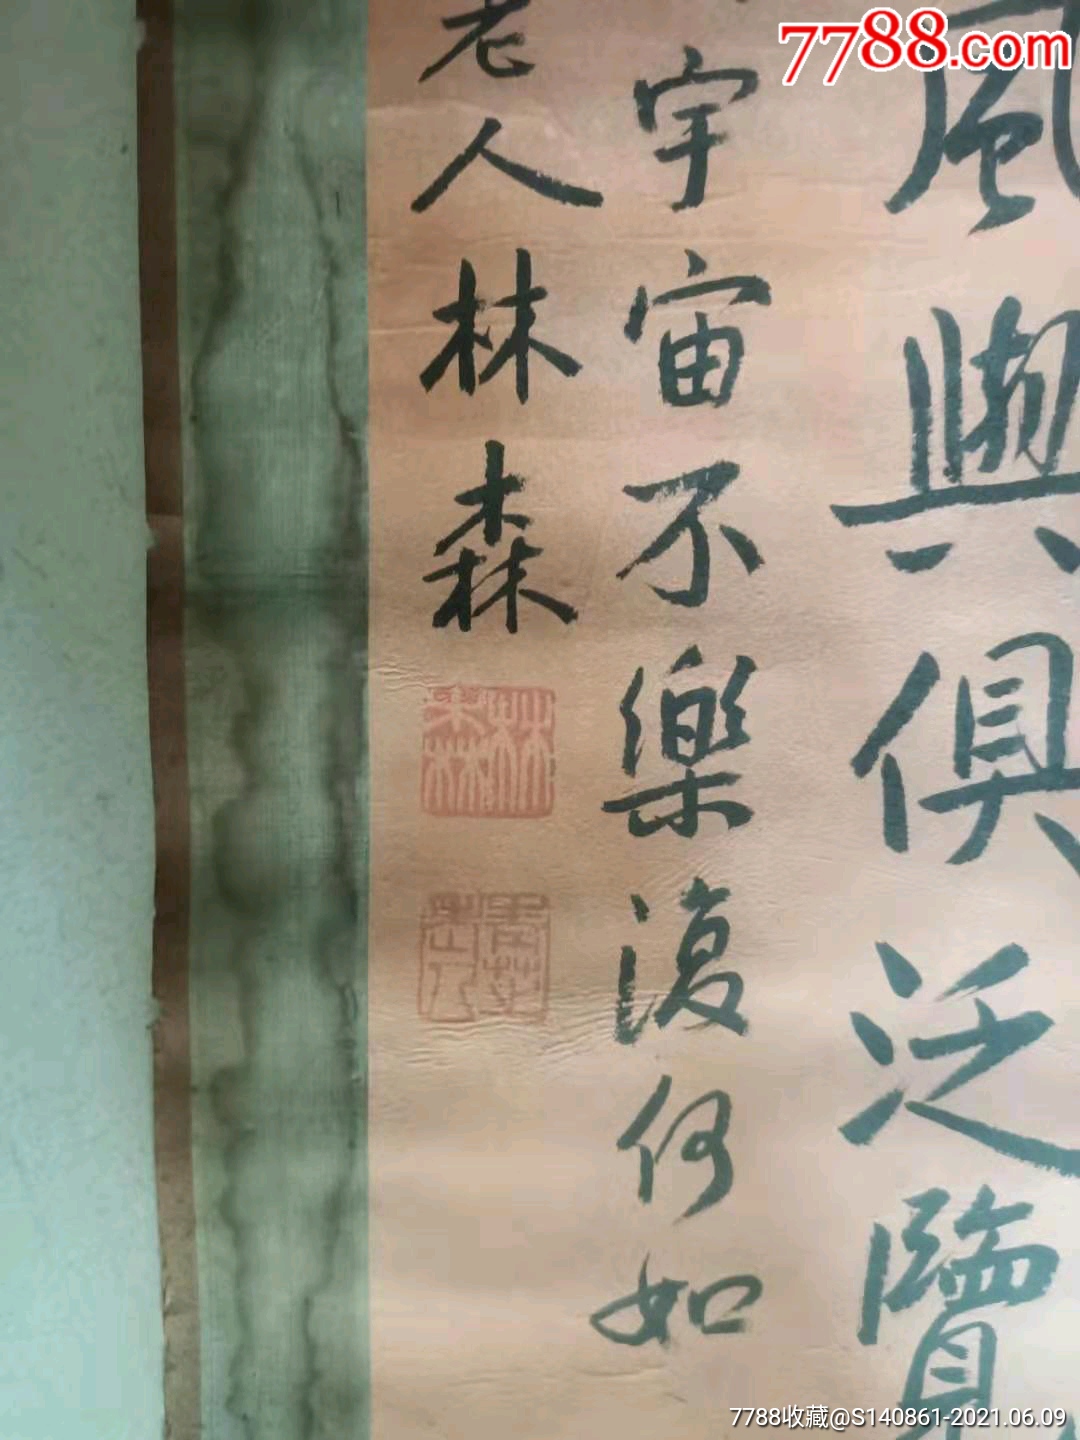 7788.com
風與俱泛覽
宇宙不樂復何如
老人林森
林森
7788收藏@S140861-2021.06.09